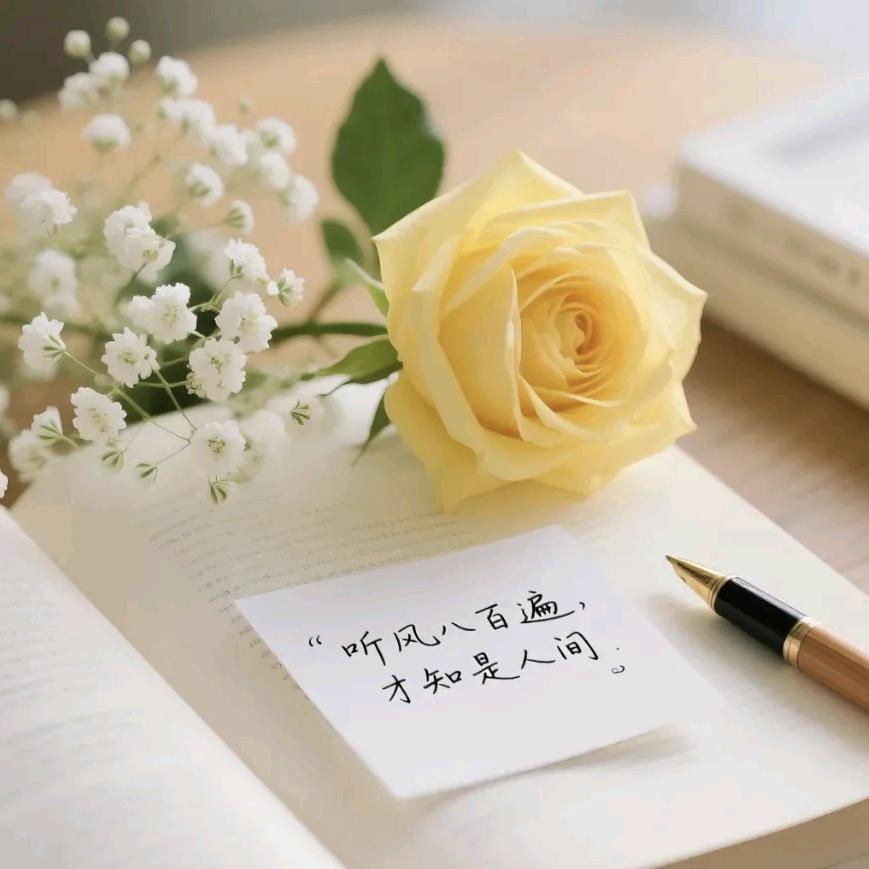 “听风八百遍，
才知是人间。